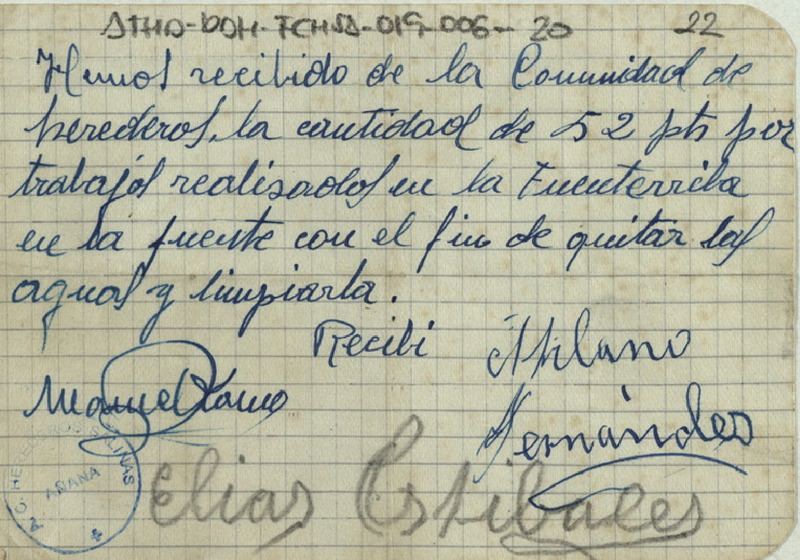 ATHA-DAH-FCHSA-019-006-20 22
Hemos recibido de la Comunidad de
herederos, la cantidad de 52 pts por
trabajos realisados en la Fuenterriba
en la fuente con el fin de quitar las
aguas y limpiarla.
Recibi Atilano
Manuel
Hernández
HEREDEROS SALINAS
AÑANA
Elias Estibales